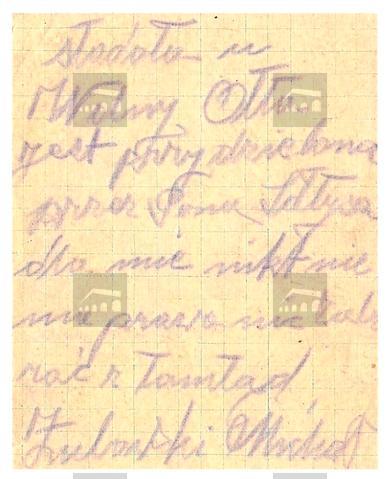 stodoła u
Wolny Otta
jest przydzielona
przez Pana Sołtysa
dla mnie nikt nie
ma prawa nic
rać z tamtąd
Michał